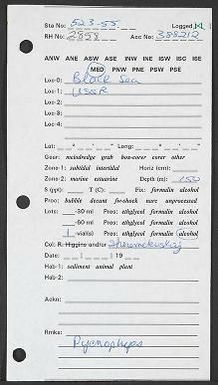 Sta No: 523-55 Logged
RH No: 2858 Acc No: 388212
ANW ANE ASW ASE INW INE ISW ISC ISE
MED PNW PNE PSW PSE
Loc-0: Black Sea
Loc-1: USSR
Loc-2:
Loc-3:
Loc-4:
Lat: Long:
Gear: meiodredge grab box-corer corer other
Zone-1: subtidal intertidal Horiz (cm):
Zone-2: marine estuarine Depth (m): 150
S (ppt): T (C): Fix: formalin alcohol
Proc: bubble decant for+back mare unprocessed
Lots: -30 ml Pres: ethylgcol formalin alcohol
-50 ml Pres: ethylgcol formalin alcohol
1 vial(s) Pres: ethylgcol formalin alcohol
Col: R. Higgins and/or
Date: 19
Hab-1: sediment animal plant
Hab-2:
Ackn:
Rmks:
Pycnophyes